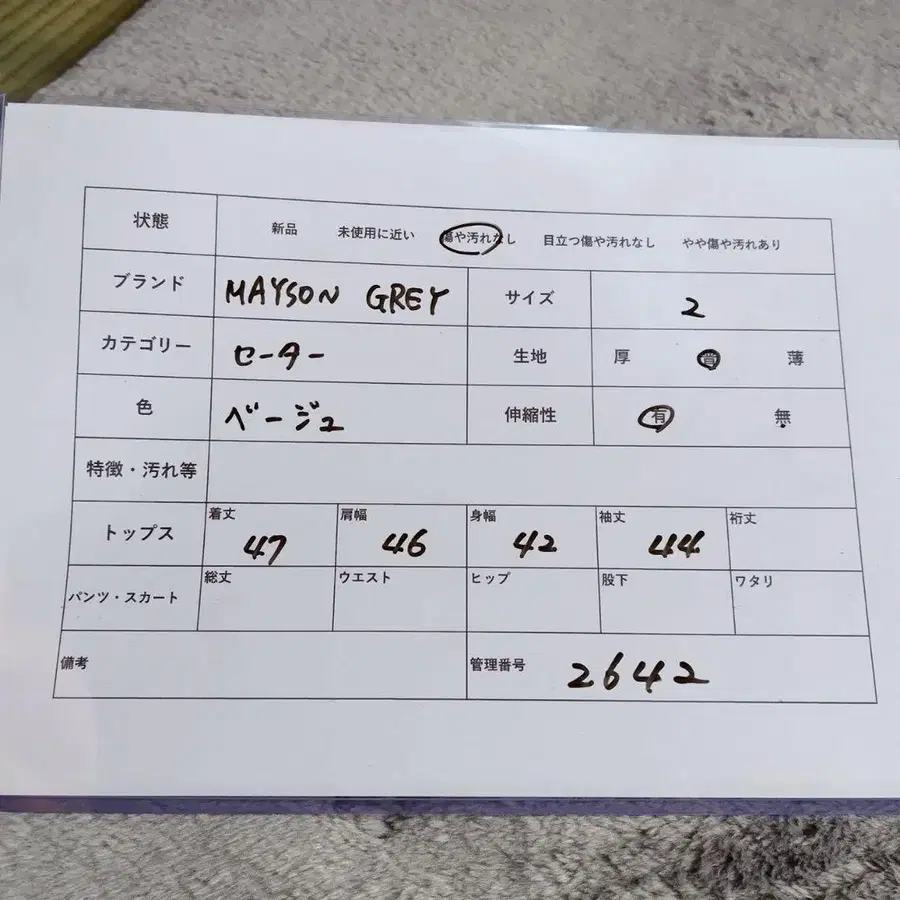 状態 新品 未使用に近い 傷や汚れなし 目立つ傷や汚れなし やや傷や汚れあり
ブランド MAYSON GREY サイズ 2
カテゴリー セーター 生地 厚 普 薄
色 ベージュ 伸縮性 有 無
特徴・汚れ等
トップス 着丈 47 肩幅 46 身幅 42 袖丈 44 裄丈
パンツ・スカート 総丈 ウエスト ヒップ 股下 ワタリ
備考 管理番号 2642